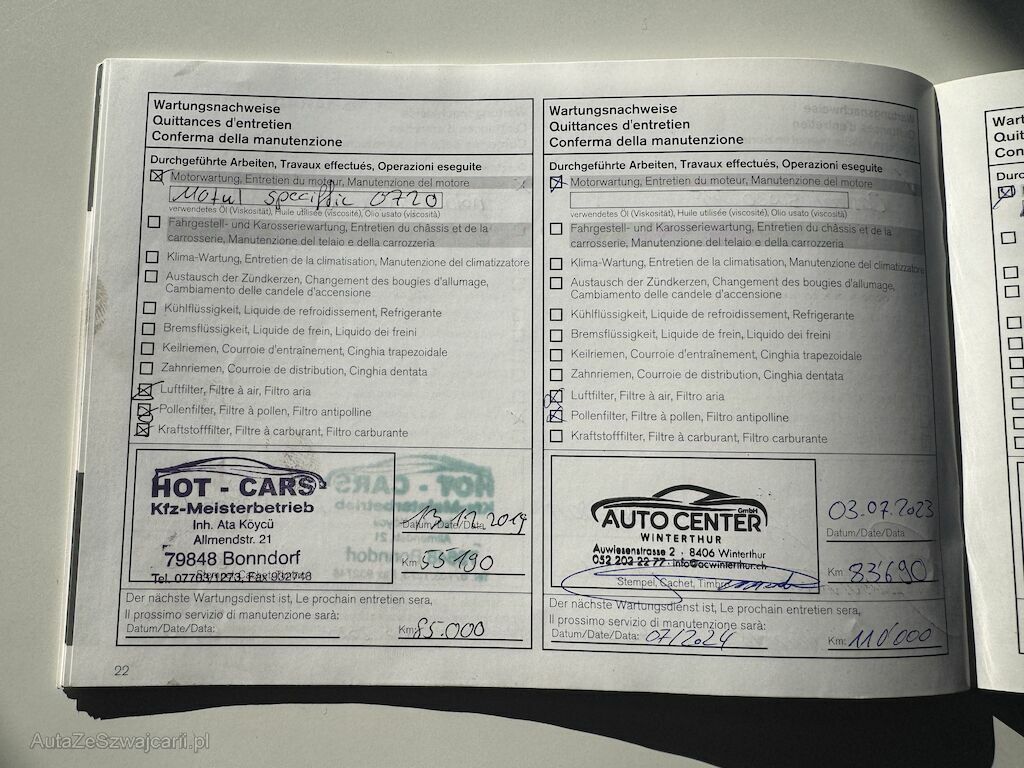 Wartungsnachweise
Quittances d'entretien
Conferma della manutenzione
Durchgeführte Arbeiten, Travaux effectués, Operazioni eseguite
Motorwartung, Entretien du moteur, Manutenzione del motore
Motul specific 0720
verwendetes Öl (Viskosität), Huile utilisée (viscosité), Olio usato (viscosità)
Fahrgestell- und Karosseriewartung, Entretien du châssis et de la
carrosserie, Manutenzione del telaio e della carrozzeria
Klima-Wartung, Entretien de la climatisation, Manutenzione del climatizzatore
Austausch der Zündkerzen, Changement des bougies d'allumage,
Cambiamento delle candele d'accensione
Kühlflüssigkeit, Liquide de refroidissement, Refrigerante
Bremsflüssigkeit, Liquide de frein, Liquido dei freini
Keilriemen, Courroie d'entraînement, Cinghia trapezoidale
Zahnriemen, Courroie de distribution, Cinghia dentata
Luftfilter, Filtre à air, Filtro aria
Pollenfilter, Filtre à pollen, Filtro antipolline
Kraftstofffilter, Filtre à carburant, Filtro carburante
HOT - CARS
Kfz-Meisterbetrieb
Inh. Ata Köycü
Allmendstr. 21
79848 Bonndorf
Tel. 07703/1273, Fax 932748
13.12.2019
Datum/Date/Data
Km 55190
Der nächste Wartungsdienst ist, Le prochain entretien sera,
Il prossimo servizio di manutenzione sarà:
Datum/Date/Data:
Km: 85.000
22
Wartungsnachweise
Quittances d'entretien
Conferma della manutenzione
Durchgeführte Arbeiten, Travaux effectués, Operazioni eseguite
Motorwartung, Entretien du moteur, Manutenzione del motore
verwendetes Öl (Viskosität), Huile utilisée (viscosité), Olio usato (viscosità)
Fahrgestell- und Karosseriewartung, Entretien du châssis et de la
carrosserie, Manutenzione del telaio e della carrozzeria
Klima-Wartung, Entretien de la climatisation, Manutenzione del climatizzatore
Austausch der Zündkerzen, Changement des bougies d'allumage,
Cambiamento delle candele d'accensione
Kühlflüssigkeit, Liquide de refroidissement, Refrigerante
Bremsflüssigkeit, Liquide de frein, Liquido dei freini
Keilriemen, Courroie d'entraînement, Cinghia trapezoidale
Zahnriemen, Courroie de distribution, Cinghia dentata
Luftfilter, Filtre à air, Filtro aria
Pollenfilter, Filtre à pollen, Filtro antipolline
Kraftstofffilter, Filtre à carburant, Filtro carburante
GmbH
AUTO CENTER
WINTERTHUR
Auwiesenstrasse 2 · 8406 Winterthur
052 202 22 77 · info@acwinterthur.ch
Stempel, Cachet, Timbro
03.07.2023
Datum/Date/Data
Km 83'690
Der nächste Wartungsdienst ist, Le prochain entretien sera,
Il prossimo servizio di manutenzione sarà:
Datum/Date/Data: 07/2024
Km: 110'000
AutaZeSzwajcarii.pl